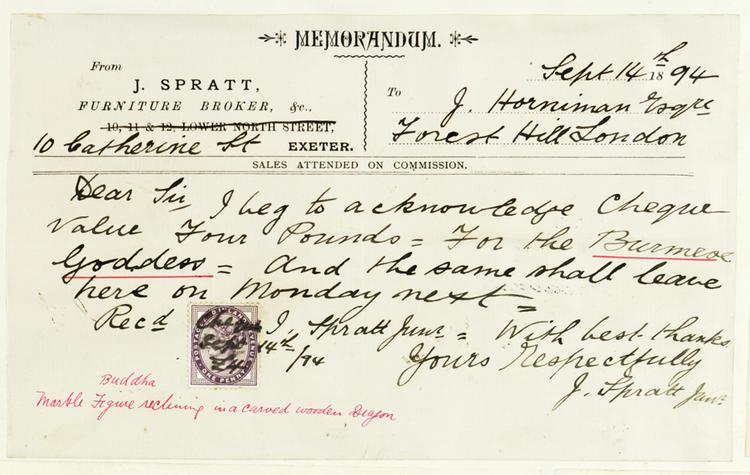 MEMORANDUM.
Sept 14th 1894
From
J. SPRATT,
FURNITURE BROKER, &c.,
10, 11 & 12, LOWER NORTH STREET,
10 Catherine St EXETER.
To
J. Horniman Esqre
Forest Hill London
SALES ATTENDED ON COMMISSION.
Dear Sir I beg to acknowledge Cheque
Value Four Pounds = For the Burmese
Goddess = And the same shall leave
here on Monday next =
Recd J. Spratt Junr = With best thanks
Sept 14th /94 Yours Respectfully
£4 J. Spratt Junr
POSTAGE AND INLAND REVENUE
ONE PENNY
Buddha
Marble Figure reclining in a carved wooden Dragon